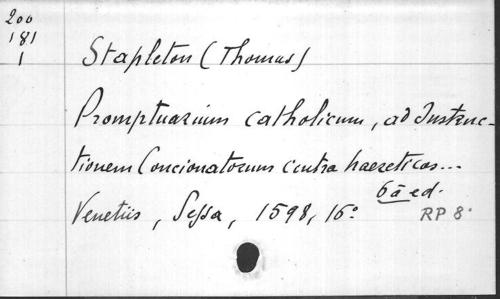 200
181
1
Stapleton (Thomas)
Promptuarium catholicum, ad Instruc-
tionem Concionatorum contra haereticos...
6ā ed.
Venetiis, Sessa, 1598, 16°
RP 8.